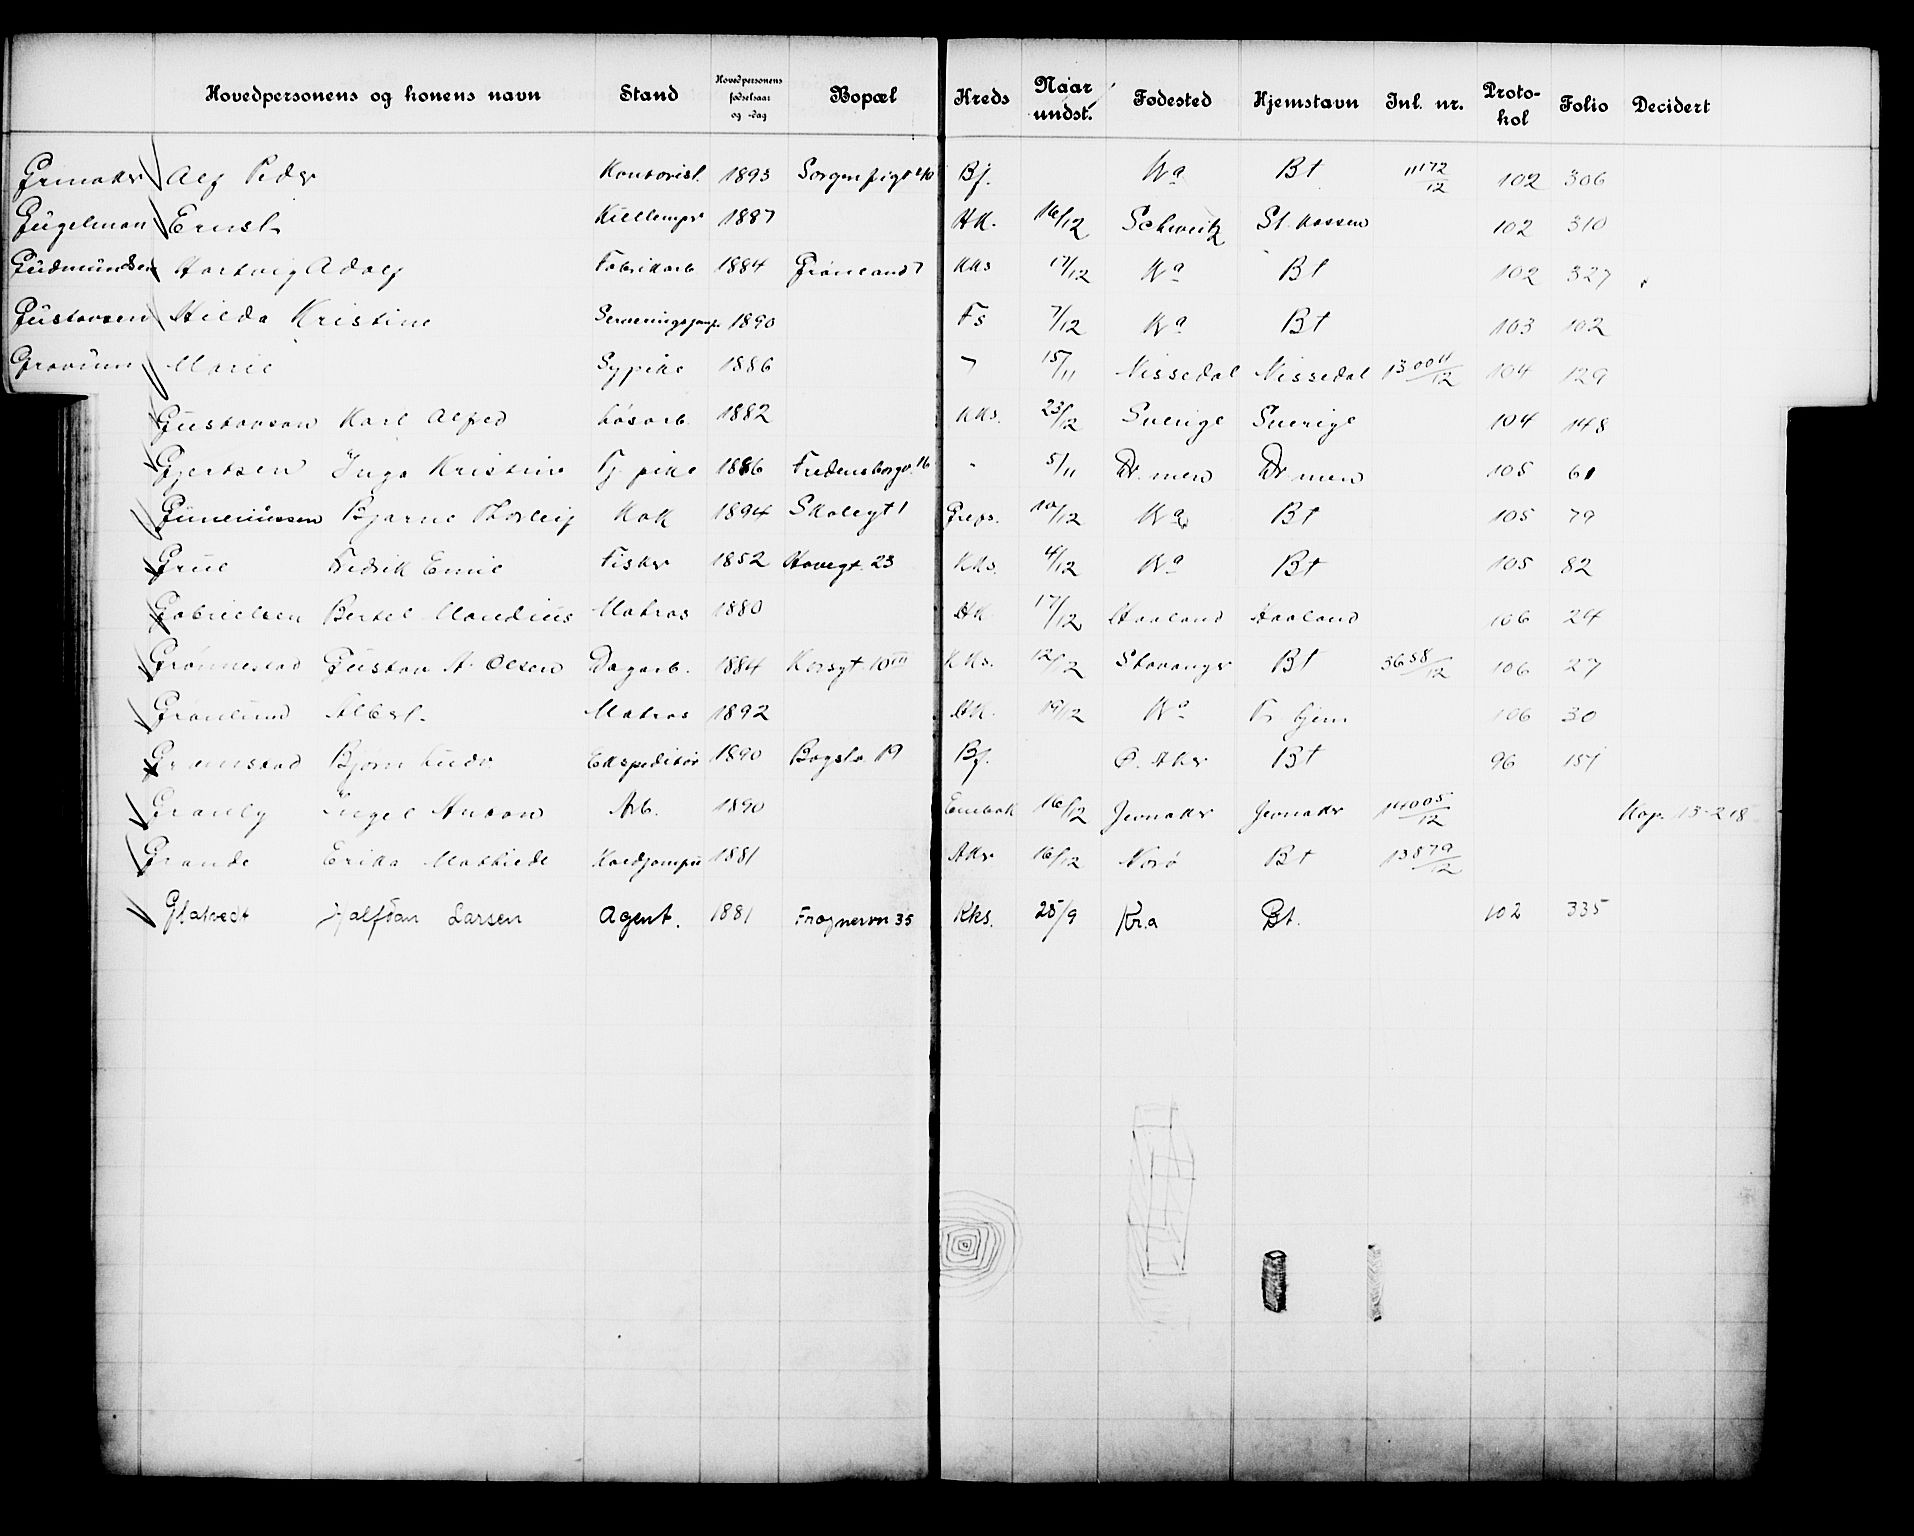 Hovedpersonens og konens navn Stand Hovedpersonens fødselsaar og -dag Bopæl Kreds Naar undst. Fødested Hjemstavn Inl. nr. Proto-kol Folio Decidert
Alf Peder Kontorist. 1893 Bf. Kr.a Bt 11172/12 102 306
Gugelman Ernst 1887 HK. 16/12 Schweitz St. 102 310
Gudmundsen Hartvig Adolf Fabrikarb 1884 Grønland 7 KKs 17/12 Kr.a Bt 102 327
Gustavsen Hilda Kristine Serveringsjomf. 1890 Fs 7/12 Kr.a Bt 103 102
Marie Sypike 1886 " 15/11 Nissedal Nissedal 13004/12 104 129
Gustavson Karl Alfred Løsarb. 1882 KKs. 23/12 Sverige Sverige 104 148
Gjertsen Inga Kristine Fj. pike 1886 Fredensborgv. 16 " 5/11 Dr.men Dr.men 105 61
Guneriussen Bjarne Thorleif Kok 1894 Skolegt 1 Grefs. 10/12 Kr.a Bt 105 79
Grue Fredrik Emil Fisker 1852 Havegt. 23 KKs. 4/12 Kr.a Bt 105 82
Gabrielsen Bertel Mandius Matros 1880 HK 17/12 Haaland Haaland 106 24
Grønnestad Gustav A. Olsen Dagarb. 1884 Korsgt 10 III KKs. 12/12 Stavanger Bt 3658/12 106 27
Grønlund Albert. Matros 1892 HK. 19/12 Kr.a Tr. hjem 106 30
Bjørn Ludv Ekspeditør 1890 Bogstv. 19 Bf. Ø. Aker Bt 96 157
Anton Arb. 1890 Eneb.k 16/12 Jevnaker Jevnaker 14005/12 Kap. 13-218
Grande Erika Mathilde 1881 Aker 16/12 Bt 13879/12
Glatvedt Halfdan Larsen Agent. 1881 Frognervn 35 Kks. 25/9 Kr.a Bt. 102 335